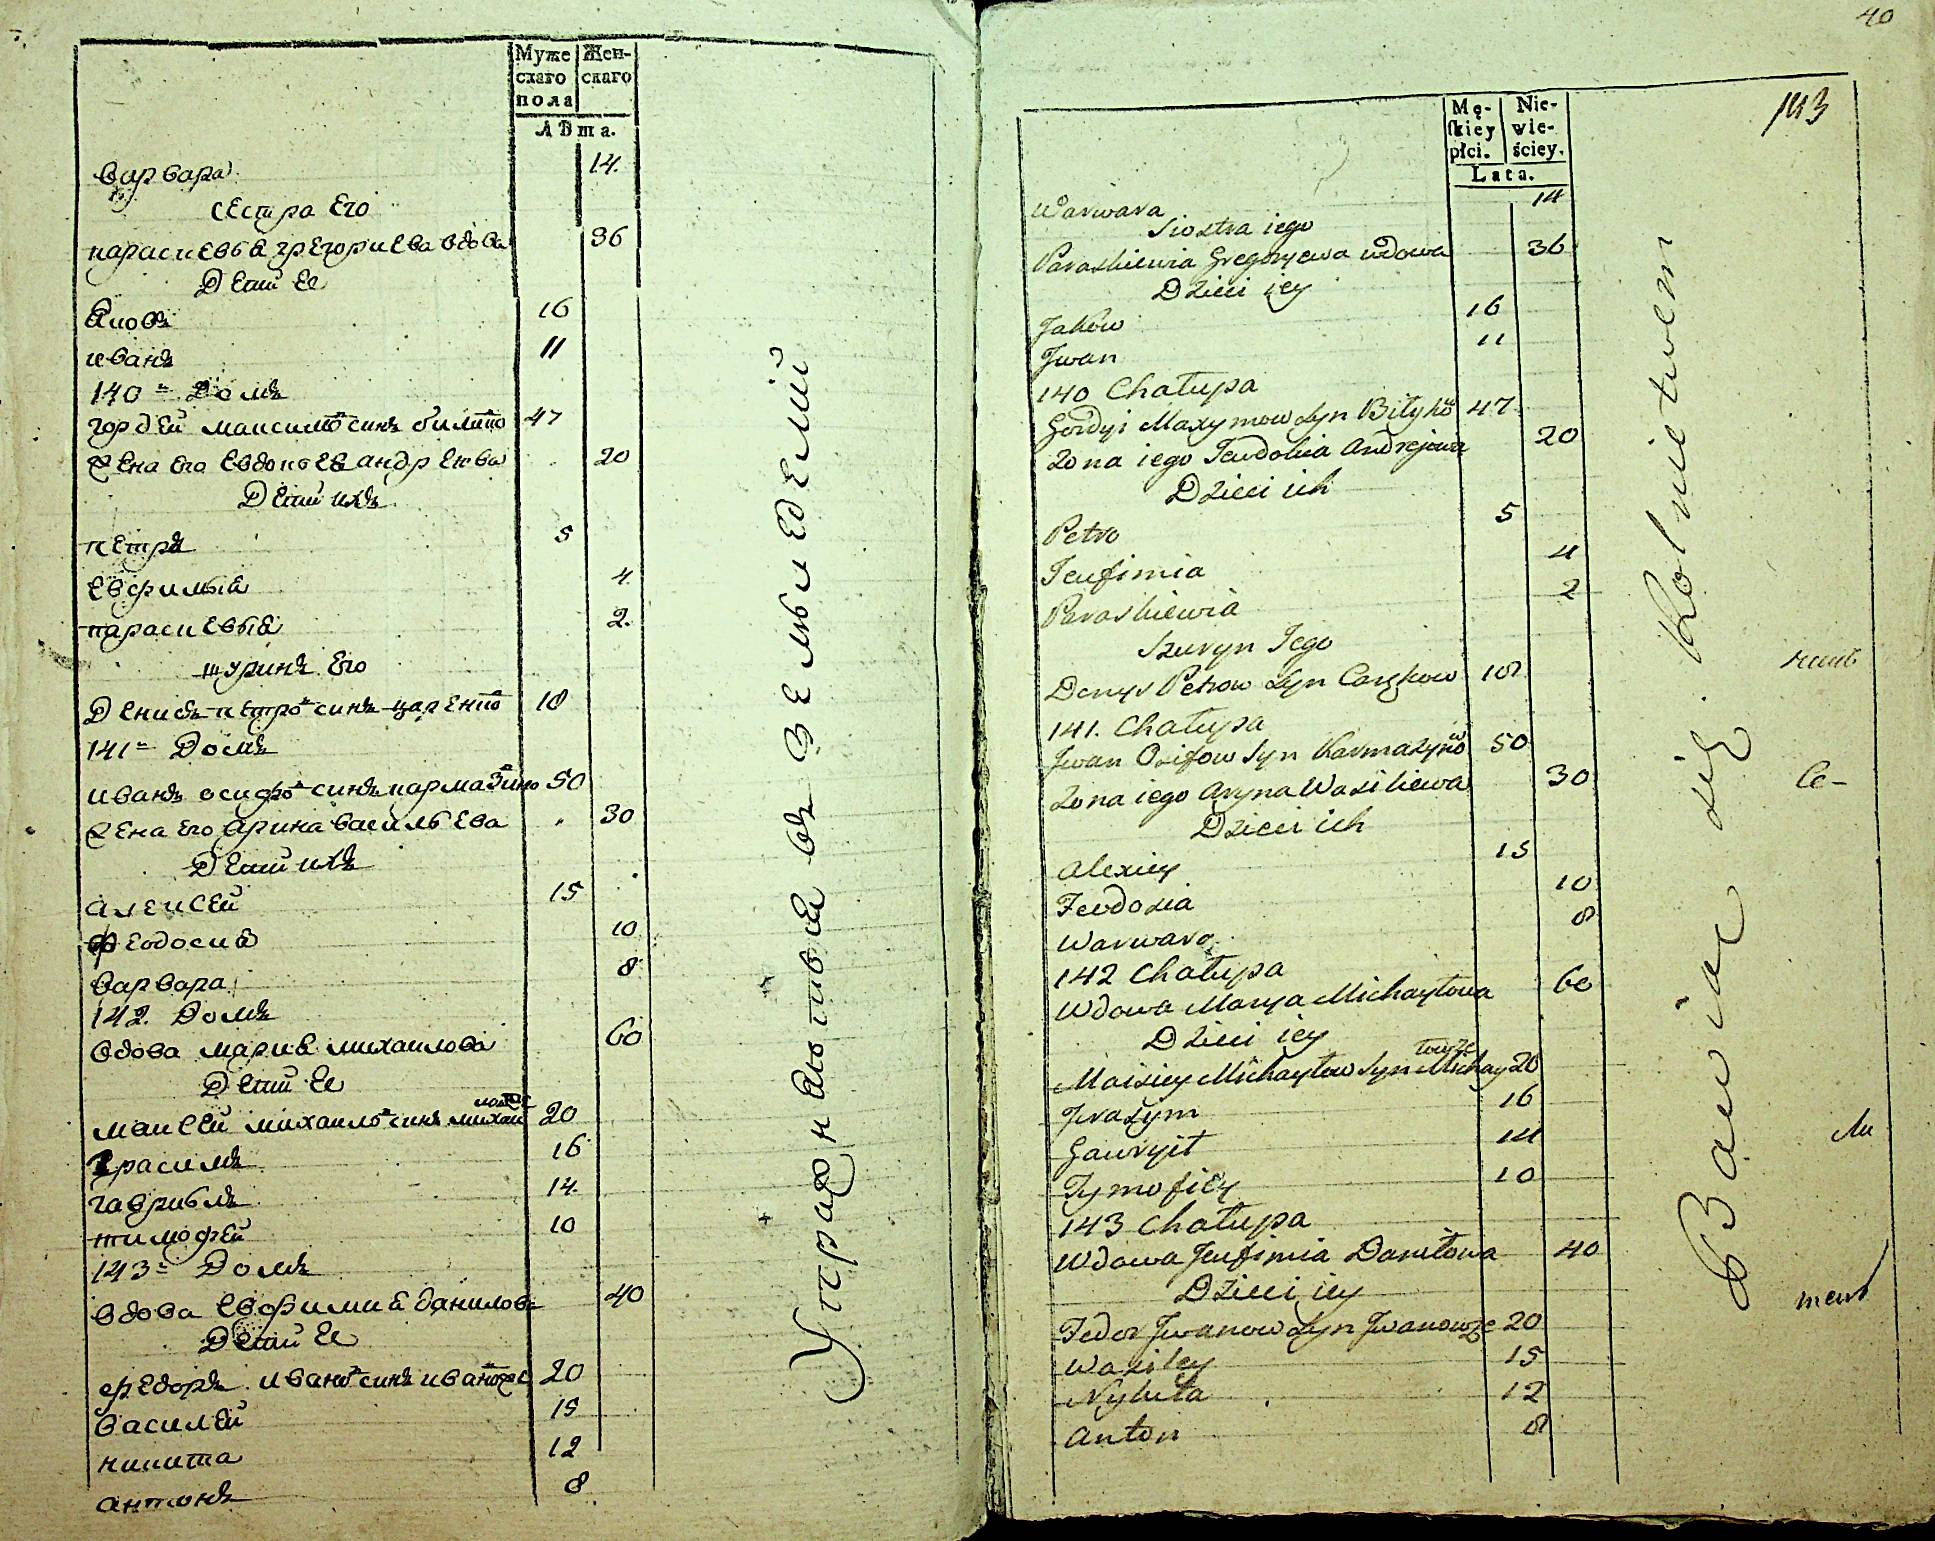 Муже Жен-
скаго скаго
пола
Лѣта.
варвара 14.
сестра Его
параскевья грегориева вдова 36
Дети Ее
Яковъ 16
иванъ 11
140 Домъ
гордей максимовъ синъ билико 47
Жена Его Евдокея андреева 20
Дети ихъ
петръ 5
Евфимья 4
параскевья 2.
шуринъ Его
Денисъ петровъ синъ царенко 18
141 Домъ
иванъ осифовъ синъ кармазино 50
Жена Его Арина васильева 30
Дети ихъ
алексей 15
Феодосия 10
варвара 8
142. Домъ
вдова мария михаилова 60
Дети Ее
моисей михаиловъ синъ михаи 20
Ерасимъ 16
гаврило 14.
тимофей 10
143 Домъ
вдова Евфимия данилова 40
Дети Ее
федоръ ивановъ синъ 20
василей 15
никита 12
антонъ 8
Упражняютъся въ Земледелии
40
143
Mę- Nie-
skiey wie-
płci. ściey.
Lata.
Warwara 14
Siostra iego
Paraskiewia Gregoryewa wdowa 36
Dzieci iey
Jakow 16
Jwan 11
140 Chałupa
Gordyi Maxymow Syn Biłyko 47
Zona iego Jewdokia Andrejewa 20
Dzieci ich
Petro 5
Jeufimia 4
Paraskiewia 2
Szuryn Jego
Denys Petrow Syn 18
141. Chałupa
Jwan Osifow Syn Karmazyno 50
Zona iego Aryna Wasiliewa 30
Dzieci ich
Alexiey 15
Feodosia 10
Warwara 8
142 Chałupa
Wdowa Marya Michayłowa 60
Dzieci iey
Moisiey Michayłow Syn Michay 20
Jrasym 16
Gawryił 14
Tymofiey 10
143 Chałupa
Wdowa Jeufimia Daniłowa 40
Dzieci iey
Fedor Jwanow Syn 20
Wasiley 15
Nykita 12
Anton 8
Bawiąc się Rolnictwem